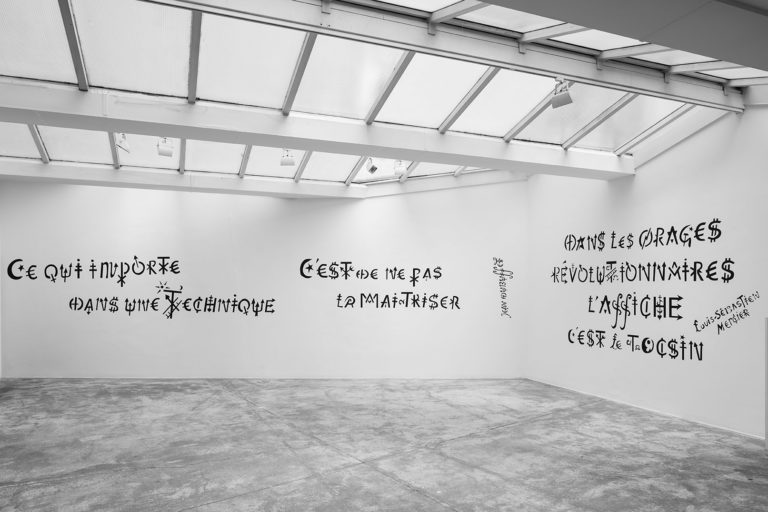 CE QUI IMPORTE
DANS UNE TECHNIQUE
C'EST DE NE PAS
LA MAITRISER
DANS LES ORAGES
RÉVOLUTIONNAIRES
L'AFFICHE
C'EST LE TOCSIN
LOUIS-SÉBASTIEN
MERCIER